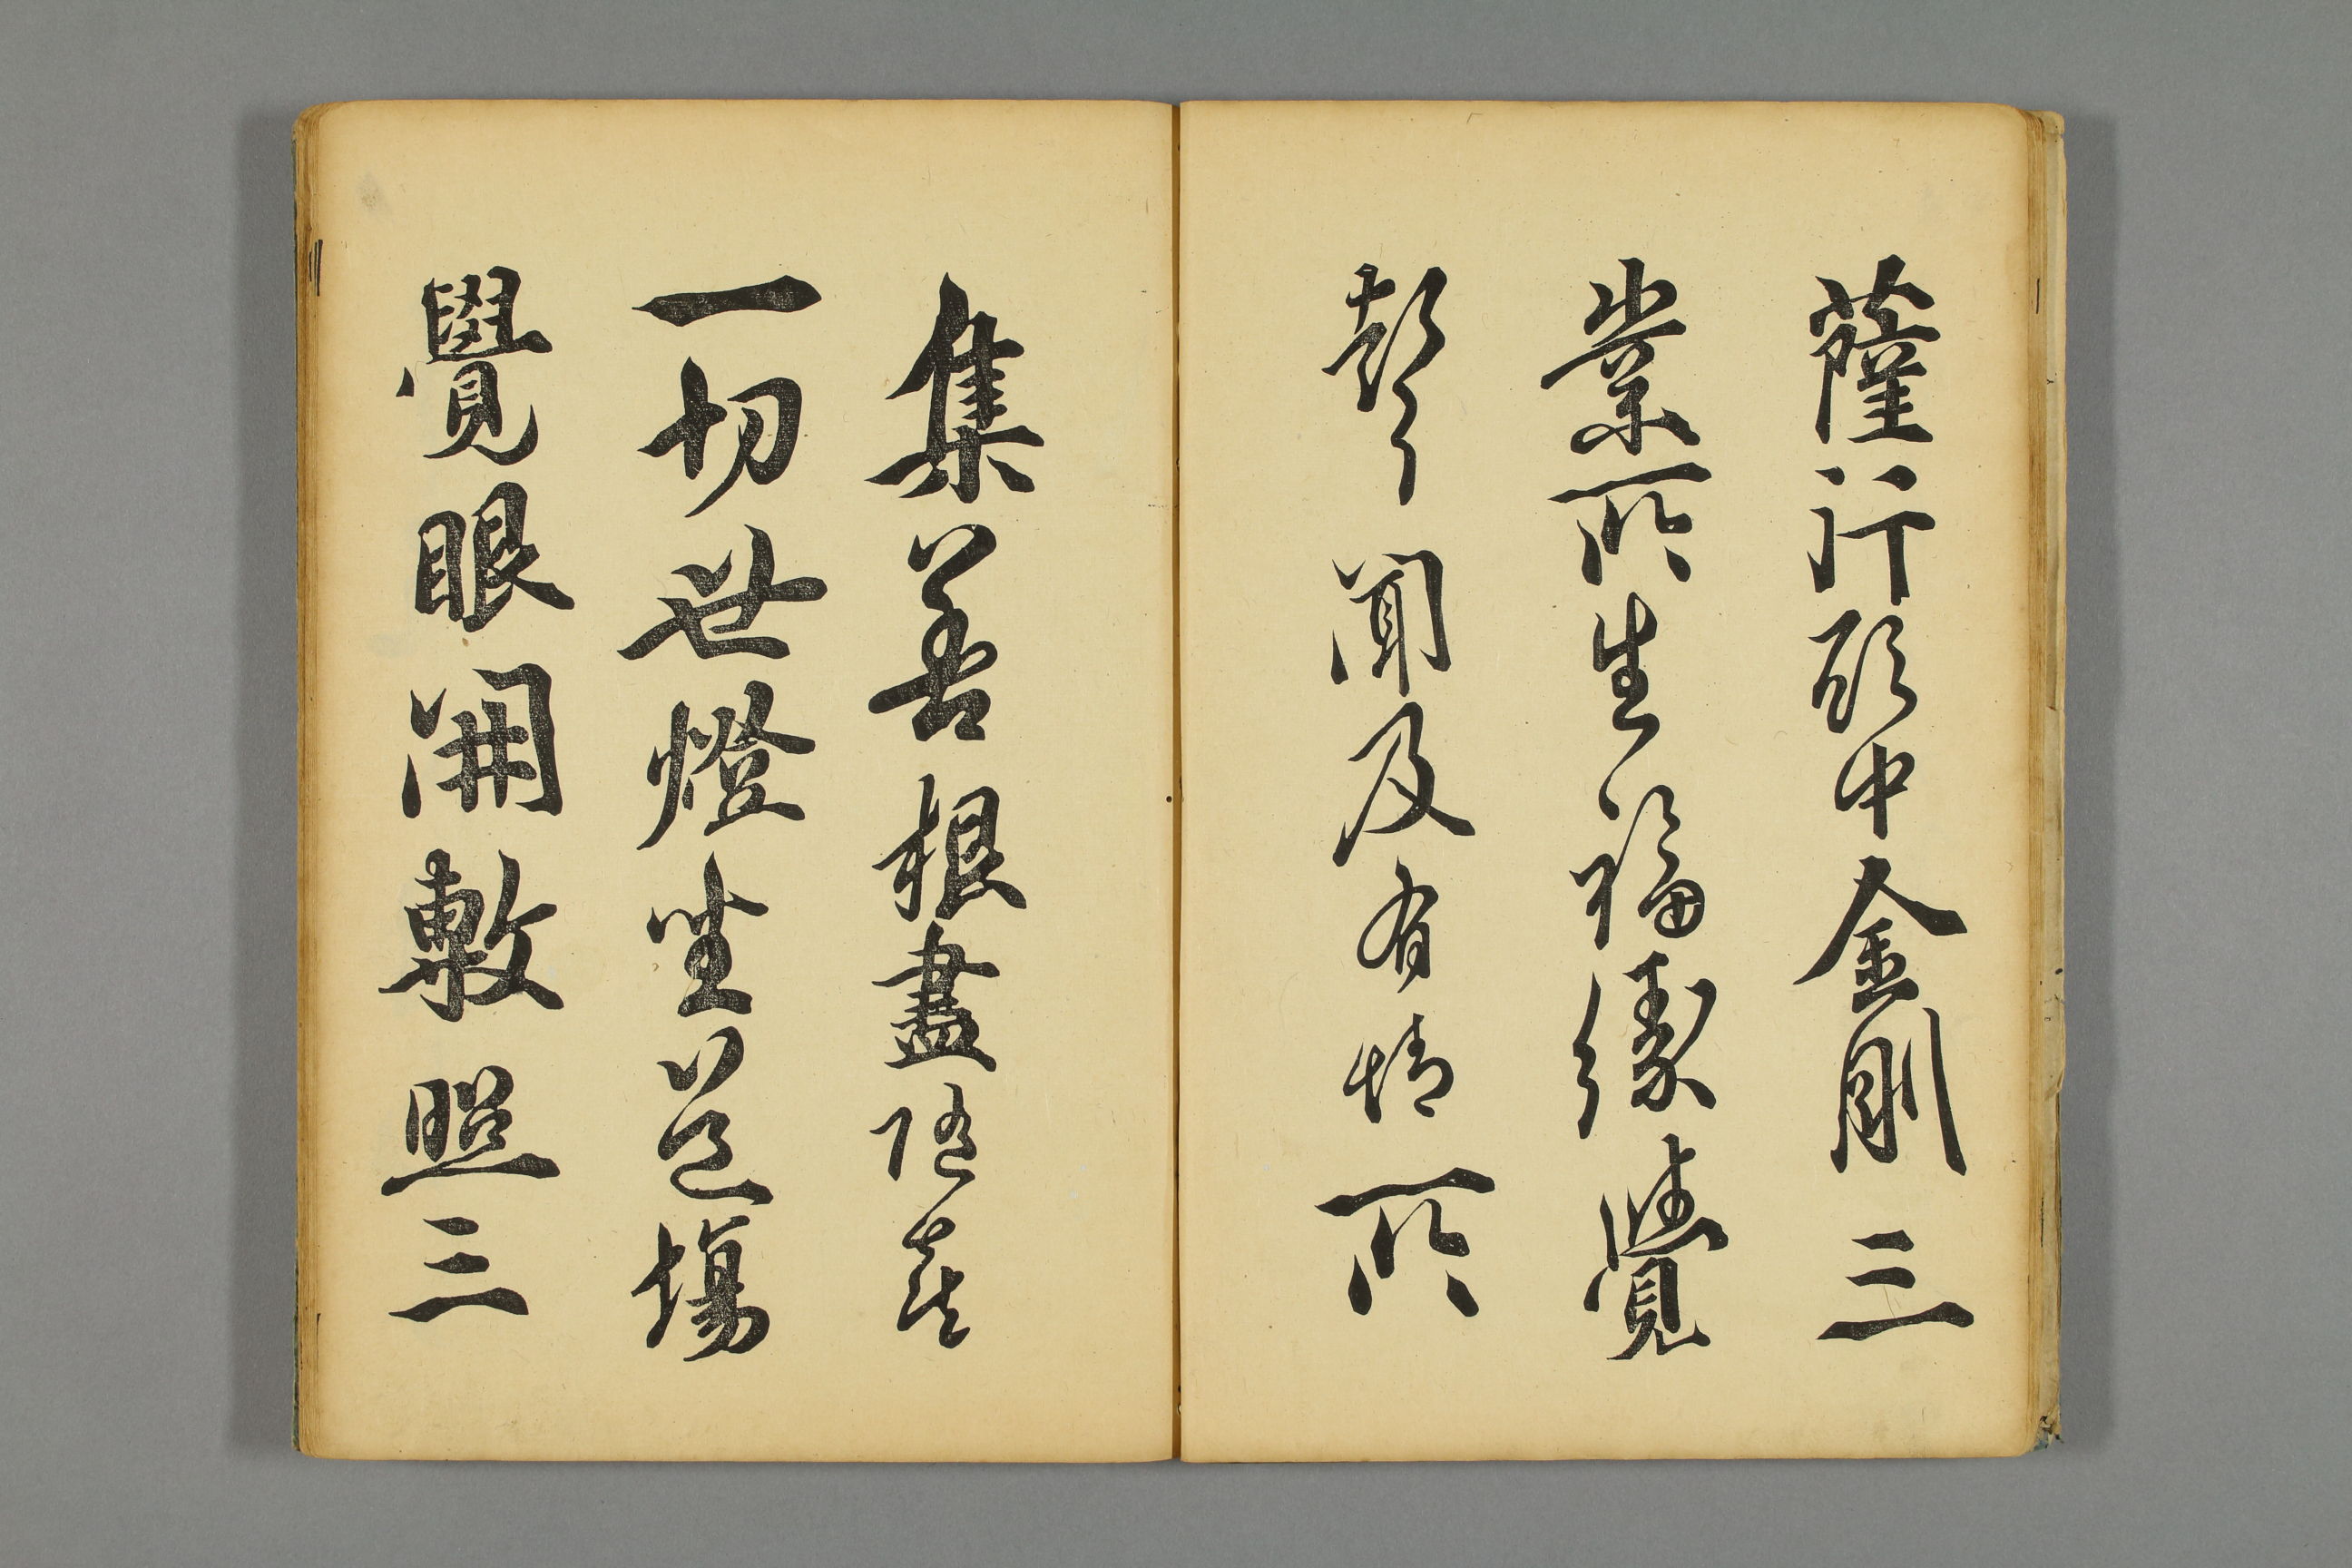 薩行願中金剛三
業所生福縁覺
聲聞及有情所
集善根盡随喜
一切世燈坐道場
覺眼開敷照三